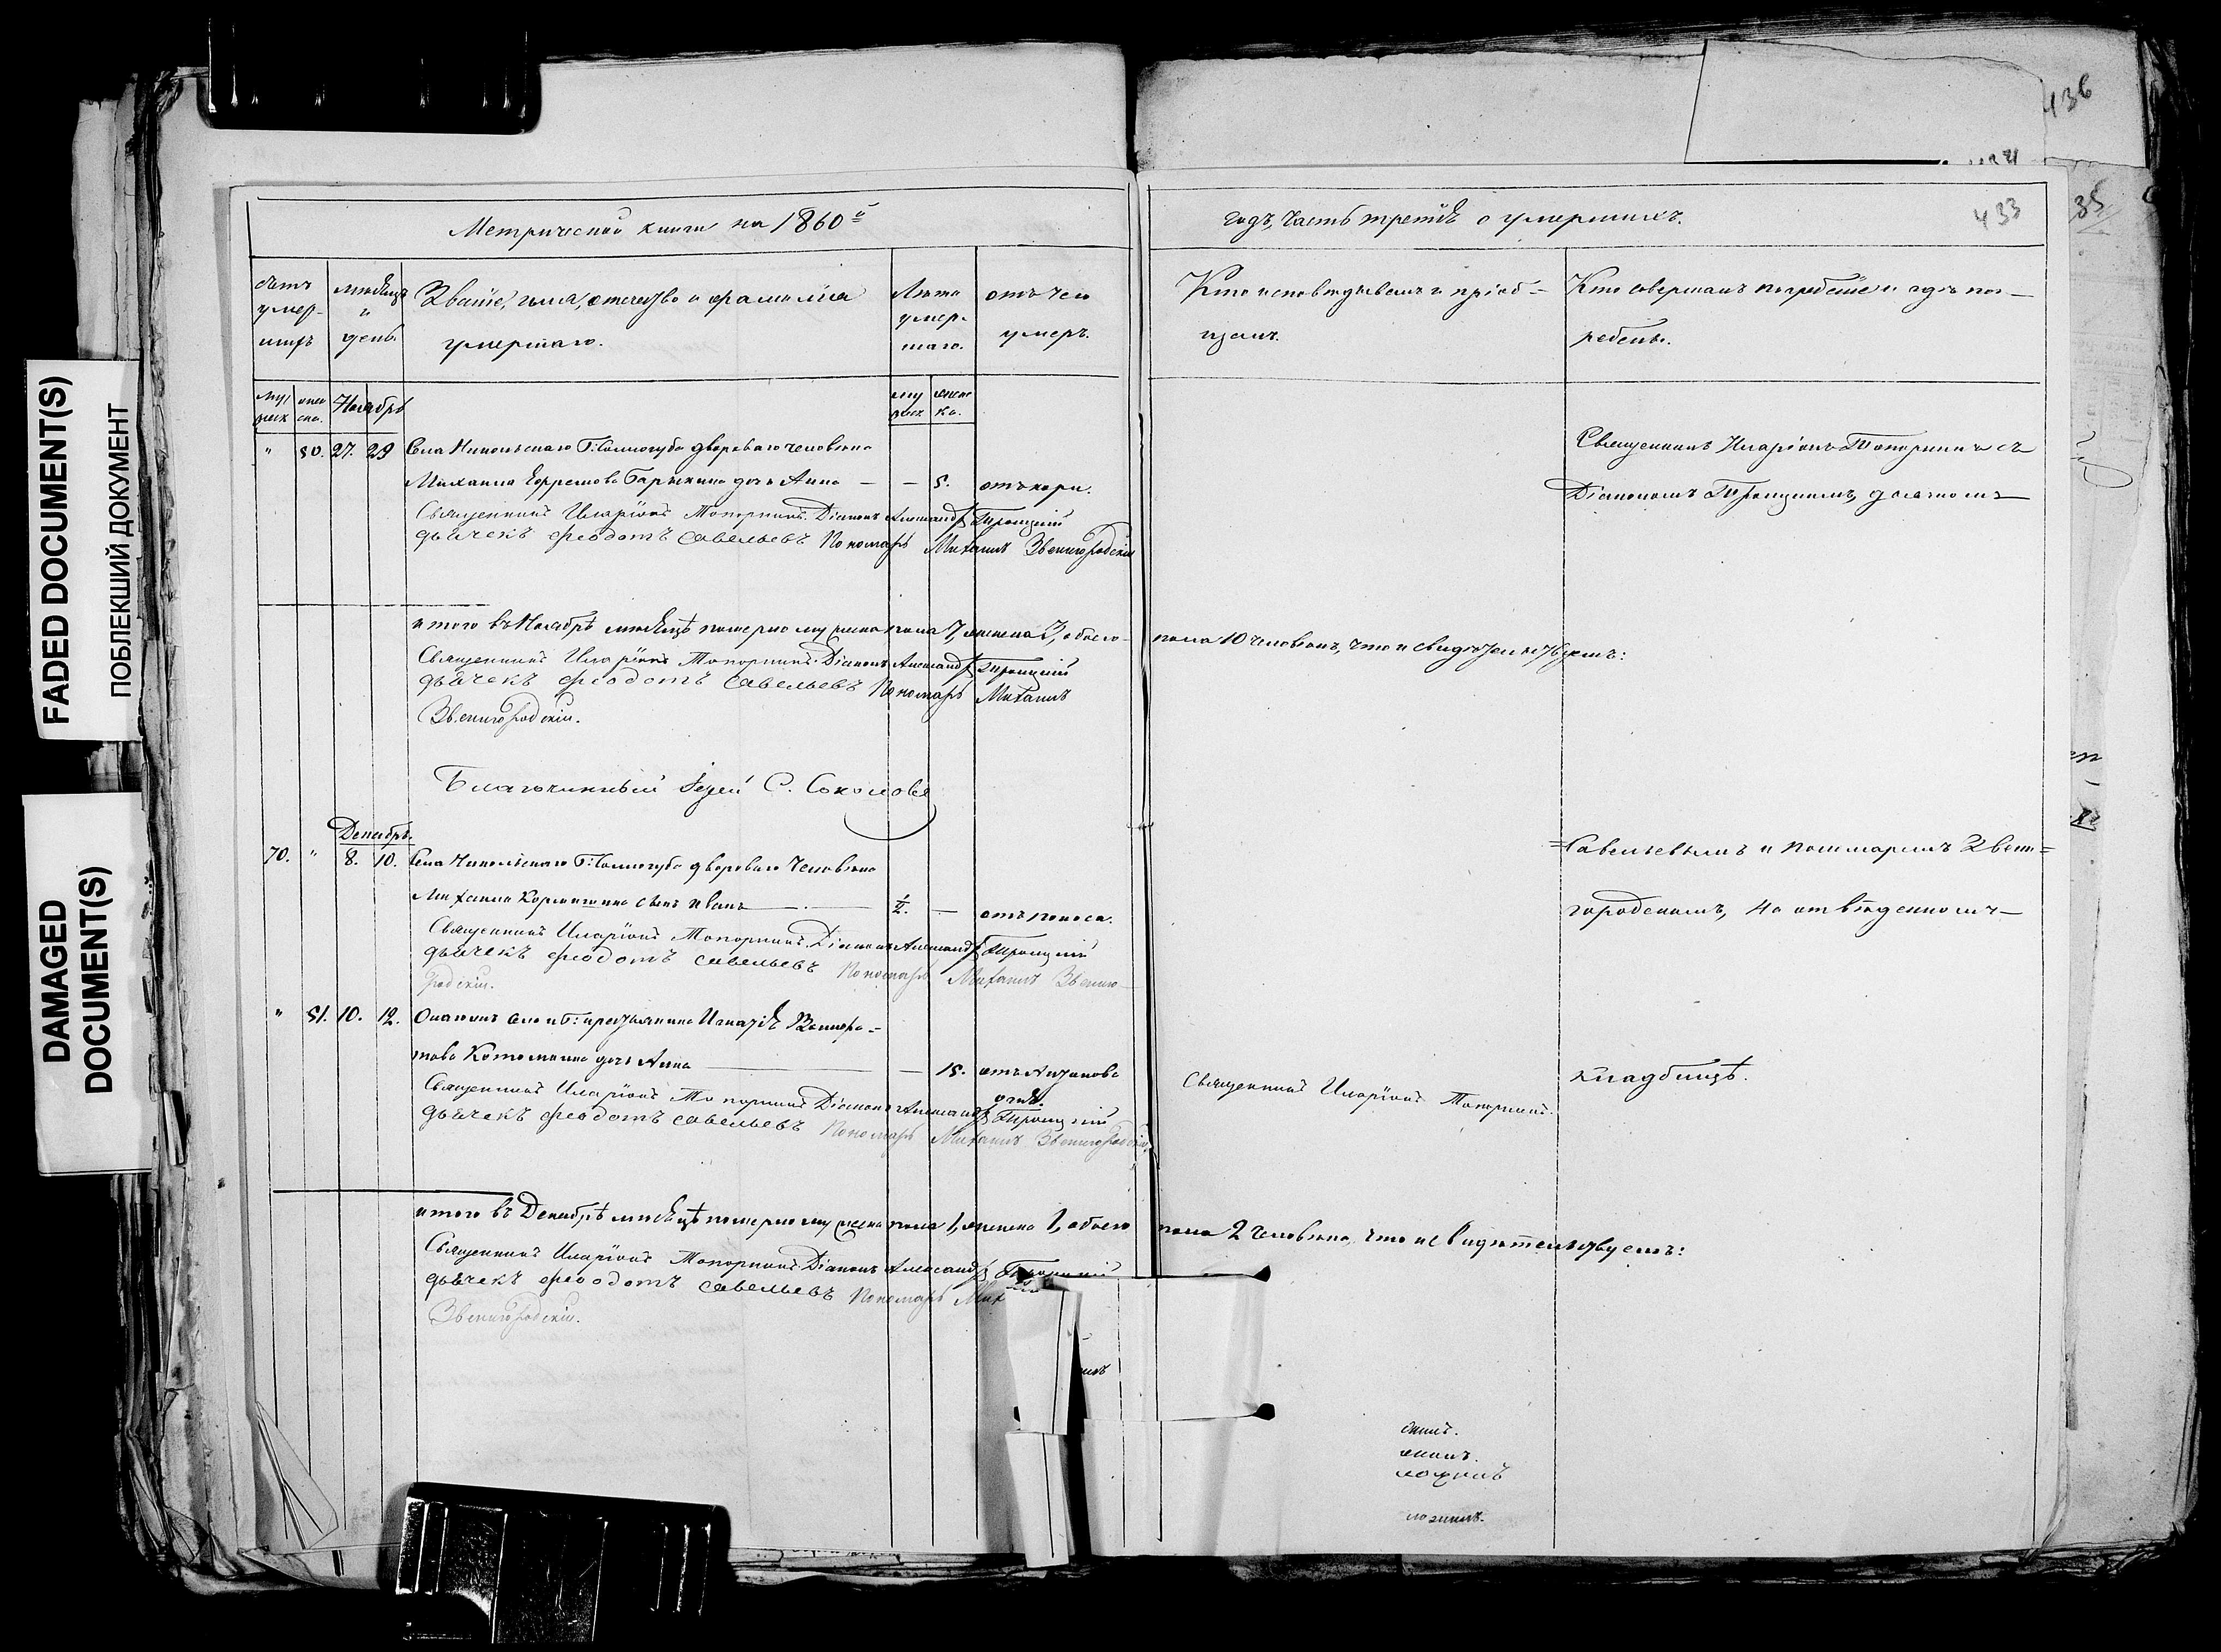 436
433
35
FADED DOCUMENT(S)
ПОБЛЕКШИЙ ДОКУМЕНТ
DAMAGED
DOCUMENT(S)
Метрической книги на 1860й
годъ, Часть третія о умершихъ.
Счетъ умер-шихъ
мѣсяцъ и день
Званіе, имя, отчество и фамилія
умершаго.
Лѣта умер-шаго.
отъ чего умеръ.
Кто исповѣдывалъ и пріоб-
щалъ.
Кто совершалъ погребеніе и гдѣ пог-
ребены.
муж женс
Ноябрь
" 50. 27. 29 Села Никольскаго двороваго человѣка
Михаила Ефремова дочь Анна — — 5. отъ кори.
Священникъ Иларіонъ Топорнинъ. Діаконъ Александръ Троицкій
дьячекъ Феодотъ Савельевъ Пономарь Михаилъ Звенигородскій
Священникъ Иларіонъ Топорнинъ съ
Діакономъ Троицкимъ, дьячкомъ
итого въ Ноябрѣ мѣсяцѣ померло мужеска пола 7, женска 3, обоего
пола 10 человѣкъ, что и свидѣтельствуемъ:
Священникъ Иларіонъ Топорнинъ. Діаконъ Александръ Троицкій
дьячекъ Феодотъ Савельевъ Пономарь Михаилъ
Звенигородскій.
Благочинный Іерей С. Соколовъ
Декабрь.
70. " 8. 10. Села Никольскаго двороваго человѣка
Михаила сынъ Иванъ — ½. — отъ поноса.
Священникъ Иларіонъ Топорнинъ. Діаконъ Александръ Троицкій
дьячекъ Феодотъ Савельевъ Пономарь Михаилъ Звениго-
родскій.
=Савельевымъ и пономаремъ Звени=
городскимъ, на отвѣденномъ
" 51. 10. 12. крестьянина Игнатія
дочь Анна — — 15. отъ Антонова
огня.
кладбищѣ.
Священникъ Иларіонъ Топорнинъ. Діаконъ Александръ Троицкій
дьячекъ Феодотъ Савельевъ Пономарь Михаилъ Звенигородскій
Священникъ Иларіонъ Топорнинъ.
итого въ Декабрѣ мѣсяцѣ померло мужеска пола 1, женска 1, обоего
пола 2 человѣка, что и свидѣтельствуемъ:
Священникъ Иларіонъ Топорнинъ. Діаконъ Александръ Троицкій
дьячекъ Феодотъ Савельевъ Пономарь Мих
Звенигородскій.